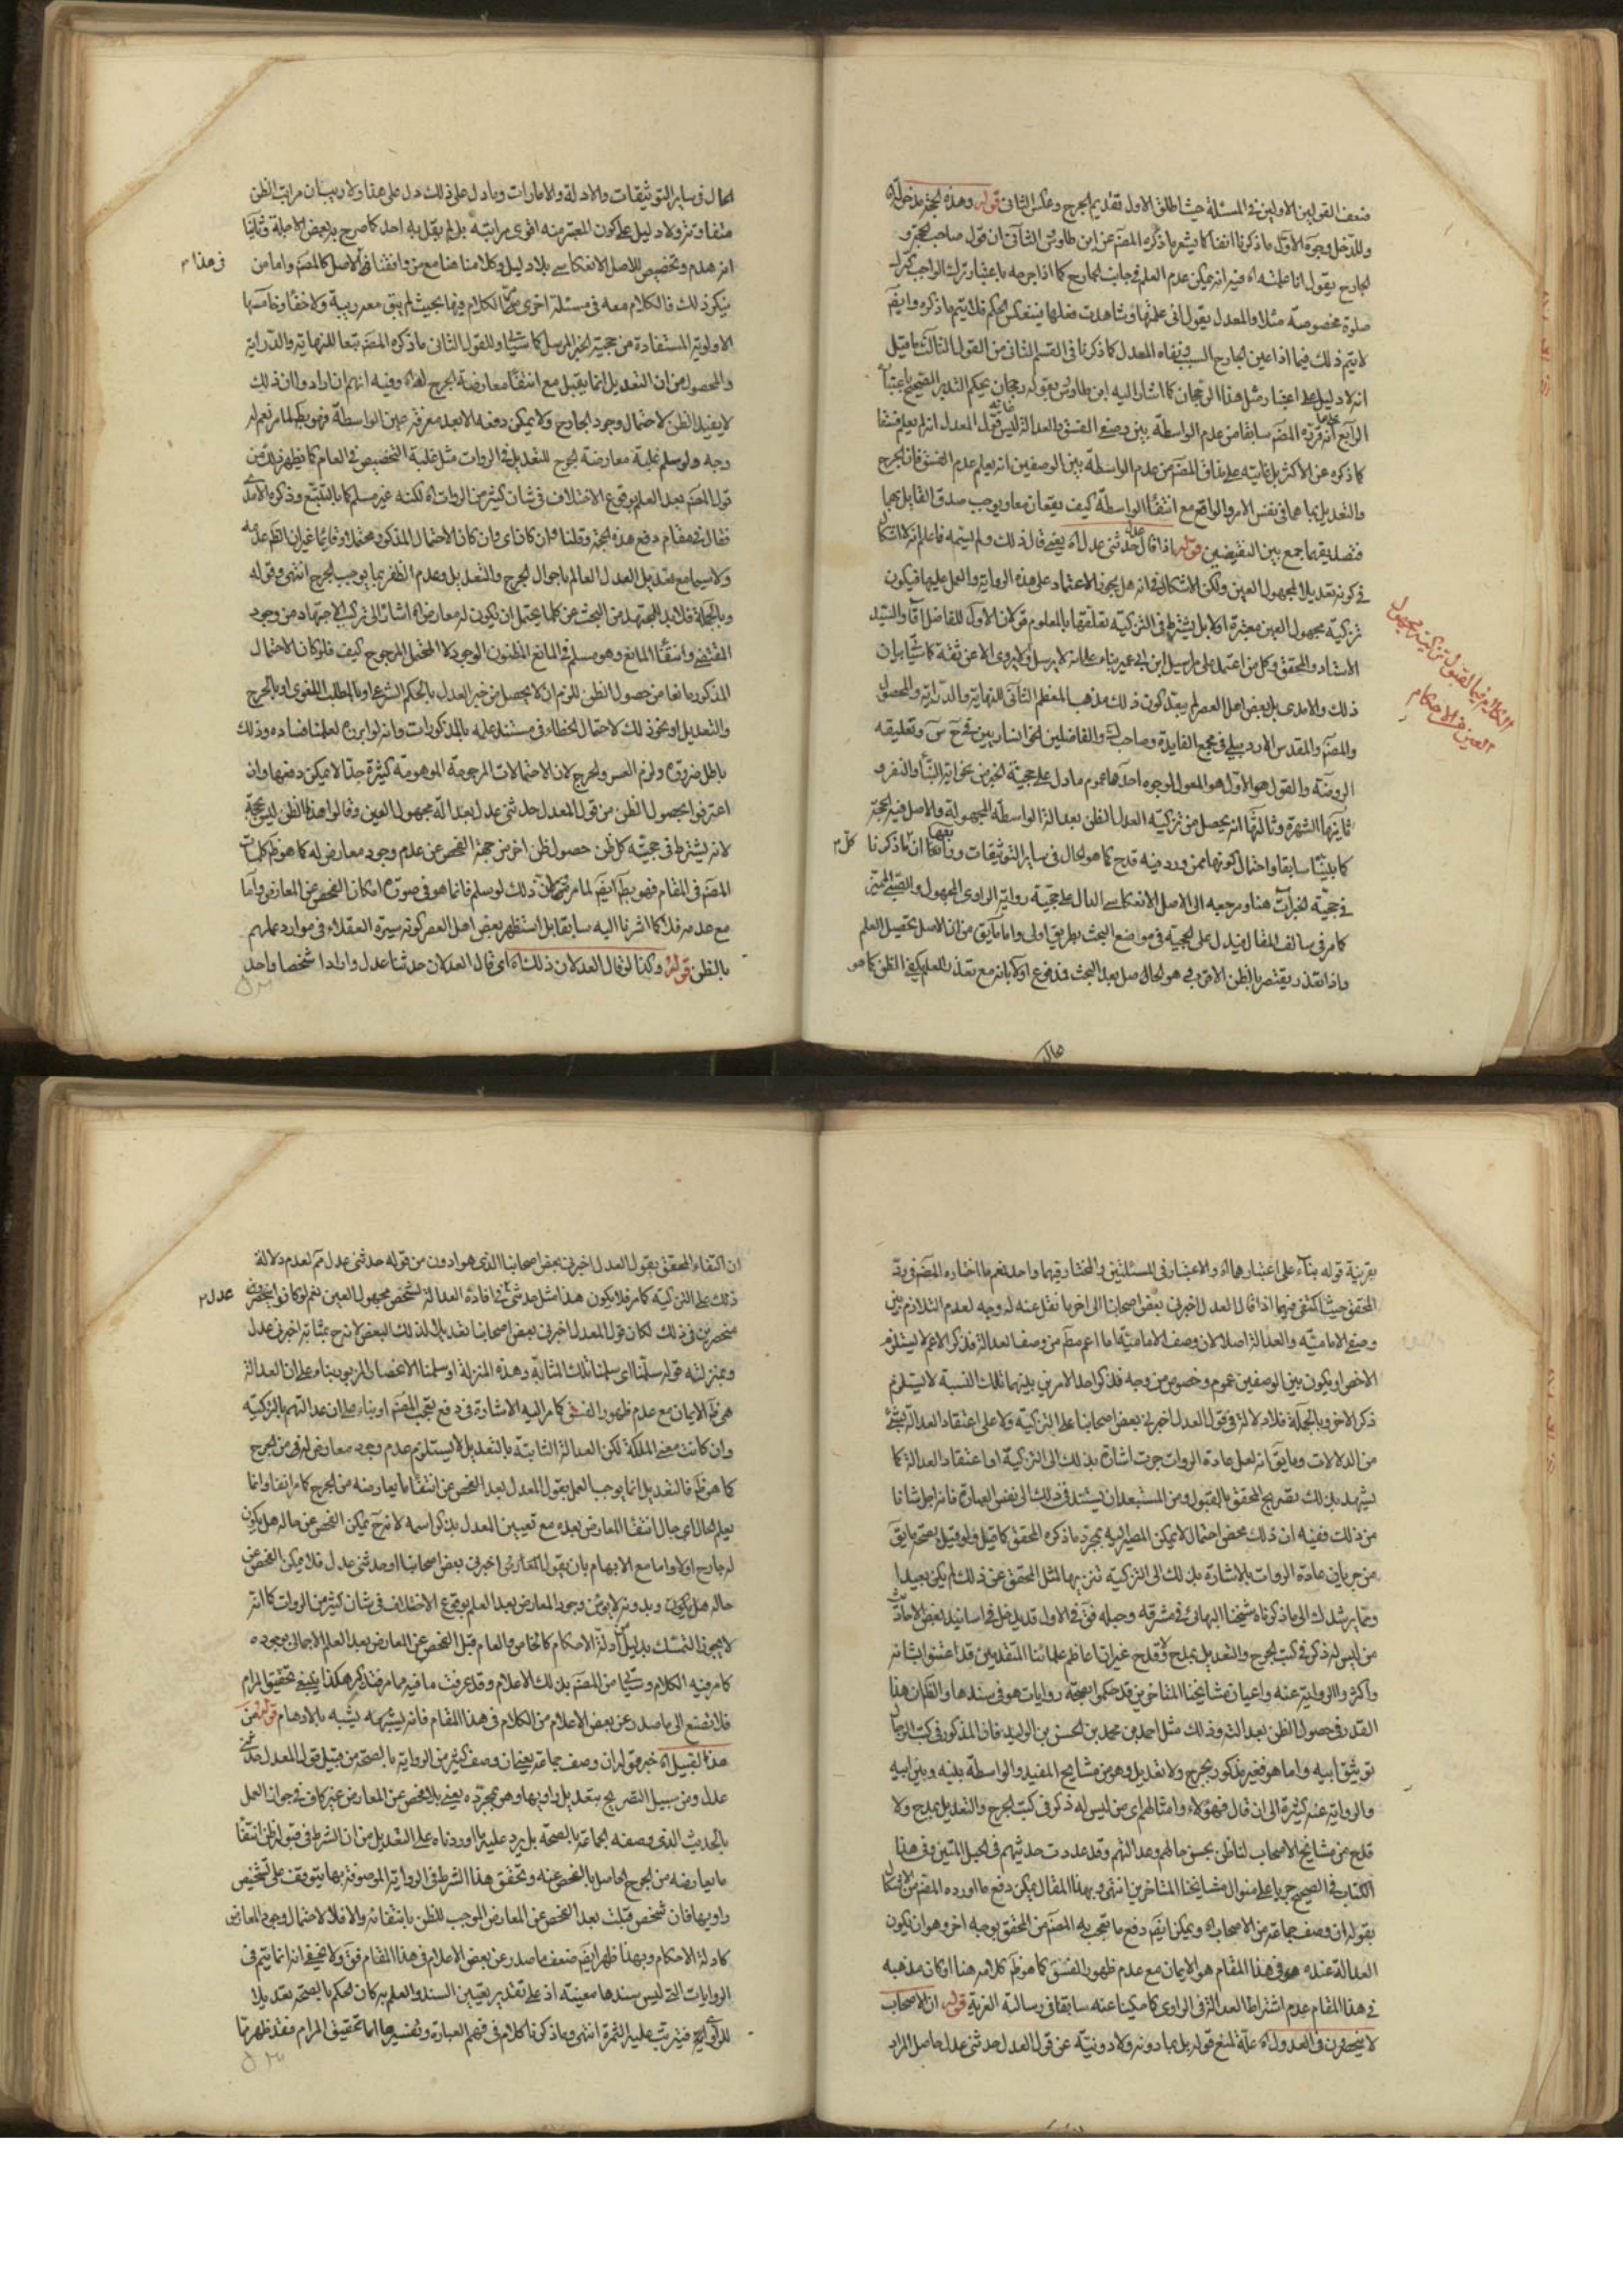 فضعف القولين الاولين في المسئلة حيث اطلق الاول تقديم الجرح وعكس الثاني قوله وهذه الحجة مدخولة
وللدخل وجوه الاول ما ذكرنا انفا كما يشعر ما ذكره المصنف عن ابن طاوس الثاني ان قول صاحب
الجارح يقول انا علمته اه فيه انه يمكن عدم العلم في جانب الجارح كما اذا جرحه باعتبار ترك الواجب كترك
صلوة مخصوصة مثلا والمعدل يقول اني علمتها وشاهدت فعلها فينعكس الحكم فلا يتم ما ذكره وايضا
لا يتم ذلك فيما اذا عين الجارح السبب ونفاه المعدل كما ذكرنا في القسم الثاني من القول الثالث
انه لا دليل على اعتبار مثل هذا الرجحان كما اشار اليه ابن طاوس بقوله رجحان يحكم التدبر الصحيح باعتباره
الرابع انه قرره المصنف سابقا من عدم الواسطة بين وصفي الفسق والعدالة ليس قول المعدل انه لم يعلم فسقا
كما ذكره عن الاكثر بل غايته على مذاق المصنف من عدم الواسطة بين الوصفين انه يعلم عدم الفسق فان الجرح
والتعديل بما هما في نفس الامر والواقع مع انتفاء الواسطة كيف يقعان معا ويوجب صدق القايل بهما
فتصديقهما جمع بين النقيضين قوله اذا قال حدثني عدل اه يعني قال ذلك ولم يسمه فاعلم انه لا اشكال
في كونه تعديلا لمجهول العين ولكن الاشكال في انه هل يجوز الاعتماد على هذه الرواية والعمل عليها فيكون
تزكية مجهول العين معتبرة او لا بل يشترط في التزكية تعلقها بالمعلوم قولان الاول للفاضل والسيد
الاستاد والمحقق وكل من اعتمد على مراسيل ابن ابي عمير بناء على انه لا يرسل ولا يروي الا عن ثقة كما
ذلك والامدي بل بعض اهل العصر لم يبعد كون ذلك مذهب المعظم الثاني للنهاية والدراية والمحصول
والمصنف والمقدس الاردبيلي في مجمع الفايدة وصاحب والفاضلين
الروضة والقول هو الاول هو المعول لوجوه احدها عموم ما دل على حجية الخبر من نحو اية النبأ والنفر و
ثانيها الشهرة وثالثها انه يحصل من تزكية العدل الظن بعدالة الواسطة المجهولة والاصل فيه الحجة
كما بيناه سابقا واحتمال كونها ممن ورد فيه قدح كما هو الحال في ساير التوثيقات ورابعها ان ما ذكرنا
في حجية هنا ومرجعه الى الاصل الانعكاسي الدال على حجية رواية الراوي المجهول والصبي المميز
كما مر في سالف المقال فيدل على الحجية في مواضع البحث بطريق اولى واما ما يق من ان الاصل تحصيل العلم
واذا تعذر يقتصر بالظن الاقوى هو الحاصل بعد البحث فمدفوع اولا بانه مع تعذر للعلم يكفي الظن كما هو
الكلام في القبول تزكية مجهول
العين في الاحكام
الحال في ساير التوثيقات والادلة والامارات وما دل على ذلك دل على هنا ولا ريب ان مراتب الظن
متفاوتة ولا دليل على كون المعتبر منه اقوى مراتبه بل لم يقل به احد كما صرح به بعض الاجلة وثانيا
انه هدم وتخصيص للاصل الانعكاسي بلا دليل وكلامنا هنا مع من وافقنا في الاصل كالمصنف واما من
في هذا م
ينكر ذلك فالكلام معه في مسئلة اخرى الكلام فيها بحيث لم يبق معه ريبة ولا خفاء وخامسها
الاولوية المستفادة من حجية الخبر المرسل كما سياتي وللقول الثاني ما ذكره المصنف تبعا للنهاية والدراية
والمحصول من ان التعديل انما يقبل مع انتفاء معارضة الجرح له اه وفيه انهم ان ارادوا ان ذلك
لا يفيد الظن لاحتمال وجود الجارح ولا يمكن دفعه الا بعد معرفة عين الواسطة فهو
وجه ولو سلم غلبة معارضة الجرح للتعديل في الروات مثل غلبة التخصيص في العام كما يظهر ذلك من
قول المصنف بعد العلم بوقوع الاختلاف في شان كثير من الروات اه لكنه غير مسلم كما بالتتبع وذكره الامدي
فقال في مقام دفع هذه الحجة وقلنا وان كان الاحتمال المذكور محتملا وقايما غير ان الظاهر عدمه
ولا سيما مع تعديل العدل العالم باحوال الجرح والتعديل وعدم الظفر بما يوجب الجرح انتهى وقوله
وبالجملة فلا بد للمجتهد من البحث عن كلما يحتمل ان يكون له معارض اه اشارة الى تركب الاجتهاد من وجود
المقتضي وانتفاء المانع وهو مسلم في المانع المظنون الوجود لا المحتمل المرجوح كيف فلو كان الاحتمال
المذكور مانعا من حصول الظن للزم ان لا يحصل من خبر العدل بالحكم الشرعي او بالمطلب اللغوي او بالجرح
والتعديل او نحو ذلك لاحتمال الخطاء في مستند علمه بالمذكورات وانه لو ابرزه لعلمنا فساده وذلك
باطل ضرورة ولزم العسر والحرج لان الاحتمالات المرجوحة الموهومة كثيرة جدا لا يمكن دفعها وان
اعترفوا بحصول الظن من قول المعدل حدثني عدل بعدالة مجهول العين وقالوا هذا الظن ليس بحجة
لانه يشترط في حجية كل ظن حصول ظن اخر من جهة الفحص عن عدم وجود معارض له كما هو ظ كلمات
المصنف في المقام فهو بط ايضا لما مر ذلك لو سلم فانما هو في صورة امكان الفحص عن المعارض واما
مع عدمه فلا كما اشرنا اليه سابقا بل استظهر بعض اهل العصر كونه سيرة العقلاء في موارد علمهم
بالظن قوله وكذا لو قال العدلان ذلك اه اي قال العدلان حدثنا عدل وارادا شخصا واحد
بقرينة قوله بناء على اعتبارها اه والاعتبار في المسئلتين والمختار فيهما واحد نعم ما اختاره المصنف في رد
المحقق حيث اكتفى فيهما اذا قال العدل اخبرني بعض اصحابنا الى اخر ما نقل عنه له وجه لعدم التلازم بين
وصفي الامامية والعدالة اصلا لان وصف الامامية اما اعم مط من وصف العدالة فذكر الاعم لا يستلزم
الاخص او يكون بين الوصفين عموم وخصوص من وجه فذكر احد الامرين بينهما تلك النسبة لا يستلزم
ذكر الاخر وبالجملة فلا دلالة في قول العدل اخبرني بعض اصحابنا على التزكية ولا على اعتقاد العدالة بشئ
من الدلالات وما يق انه لعل عادة الروات جرت اشارة بذلك الى التزكية او اعتقاد العدالة كما
يشهد بذلك تصريح المحقق بالقبول ومن المستبعد ان يستند في ذلك الى نفس العبارة فانه اجل شانا
من ذلك ففيه ان ذلك محض احتمال لا يمكن المصير اليه بمجرد ما ذكره المحقق كما قيل ولو قيل بصحة ما يق
من جريان عادة الروات بالاشارة بذلك الى التزكية تنزيها لمثل المحقق عن ذلك لم يكن بعيدا
ومما يرشدك الى ما ذكرناه شيخنا البهائي في مشرقه وحبله فق في الاول قد يدخل في اسانيد بعض الاحاديث
من ليس له ذكر في كتب الجرح والتعديل بمدح ولا قدح غير ان اعاظم علمائنا المتقدمين قد اعتنوا بشانه
واكثروا الرواية عنه واعيان مشايخنا المتاخرين قد حكموا بصحة روايات هو في سندها والظ ان هذا
القدر في حصول الظن بعدالته وذلك مثل احمد بن محمد بن الحسن بن الوليد فان المذكور في كتب الرجال
توثيق ابيه واما هو فغير مذكور بجرح ولا تعديل وهو من مشايخ المفيد والواسطة بينه وبين ابيه
والرواية عنه كثيرة الى ان قال فهؤلاء وامثالهم اي من ليس له ذكر في كتب الجرح والتعديل بمدح ولا
قدح من مشايخ الاصحاب لنا ظن بحسن حالهم وعدالتهم وقد عددت حديثهم في الحبل المتين وفي هذا
الكتاب في الصحيح جريا على منوال مشايخنا المتاخرين انتهى وبهذا المقال يمكن دفع ما اورده المصنف من الاشكال
بقوله ان وصف جماعة من الاصحاب اه ويمكن ايضا دفع ما تعجب به المصنف من المحقق بوجه اخر وهو ان يكون
العدالة عنده هو في هذا المقام هو الايمان مع عدم ظهور الفسق كما هو ظ كلامه هنا او كان مذهبه
في هذا المقام عدم اشتراط العدالة في الراوي كما حكينا عنه سابقا في رسالته الغرية قوله ان الاصحاب
لا ينحصرون في العدول اه علة لمنع قوله بل بما دونه ولا دونية عن قول العدل حدثني عدل حاصل المراد
ان اكتفاء المحقق بقول العدل اخبرني بعض اصحابنا الذي هو ادون من قوله حدثني عدل مم لعدم دلالة
ذلك على التزكية كما مر فلا يكون هذا مثل حدثني في افادة العدالة لشخص مجهول العين نعم لو كانوا
عدل م
منحصرين في ذلك لكان قول المعدل اخبرني بعض اصحابنا تعديلا لذلك البعض لانه ح بمثابة اخبرني عدل
وبمنزلته قوله سلمنا اي سلمنا تلك المثابة وهذه المنزلة او سلمنا الانحصار المزبور بناء على ان العدالة
هي ظ الايمان مع عدم ظهور الفسق كما مر اليه الاشارة في دفع تعجب المصنف او بناء على ان عدالتهم بالتزكية
وان كانت معنى الملكة لكن العدالة الثابتة بالتعديل لا يستلزم عدم وجود معارض له من الجرح
كما هو ظ فالتعديل انما يوجب العمل بقول المعدل بعد الفحص عن انتفاء ما يعارضه من الجرح كما مر انفا وانما
يعلم الحال اي حال انتفاء المعارض بعده مع تعيين المعدل بذكر اسمه لانه ح يمكن الفحص عن حاله هل يكون
له جارح او لا واما مع الابهام بان يقول اخبرني بعض اصحابنا او حدثني عدل فلا يمكن الفحص عن
حاله هل يكون وبدونه لا يؤمن وجود المعارض بعد العلم بوقوع الاختلاف في شان كثير من الروات كما انه
لا يجوز التمسك بدليل من ادلة الاحكام كالخاص والعام قبل الفحص عن المعارض بعد العلم الاجمالي بوجوده
كما مر فيه الكلام وسياتي من المصنف بذلك الاعلام وقد عرفت ما فيه مما مر فتذكر هكذا ينبغي تحقيق المرام
فلا تصغ الى ما صدر عن بعض الاعلام من الكلام في هذا المقام فانه يشبه بالاوهام قوله ومن
هذا القبيل اه خبر قوله ان وصف جماعة يعني ان وصف كثير من الرواية بالصحة من قبيل قول المعدل حدثني
عدل ومن سبيل التصريح بتعديل راويها وهو بمجرده يعني بلا فحص عن المعارض غير كاف في جواز العمل
بالحديث الذي وصفه الجماعة بالصحة بل يرد عليه ما اوردناه على التعديل من ان الشرط في قبوله ظن انتفاء
ما يعارضه من الجرح الحاصل بالفحص عنه وتحقق هذا الشرط في الرواية الموصوفة بها يتوقف على تشخيص
راويها فان تشخص قبلت بعد الفحص عن المعارض الموجب للظن بانتفائه والا فلا لاحتمال وجود المعارض
كادلة الاحكام وبهذا ظهر ايضا ضعف ما صدر عن بعض الاعلام في هذا المقام فق ولا يخفى انه انما يتم في
الروايات التي ليس سندها معينة اذ على تقدير تعيين السند والعلم به كان الحكم بالصحة تعديلا
للراوي فيترتب عليه الثمرة انتهى وما ذكرنا كلام في فهم العبارة وتفسيرها اما تحقيق المرام فقد ظهر مما